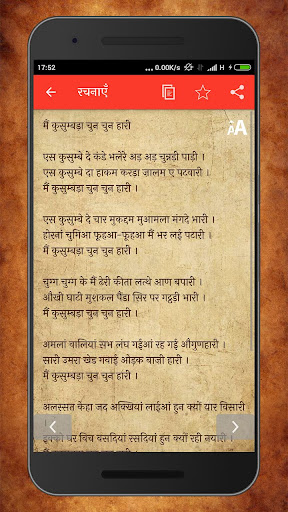 17:52
... 0.00K/s H
रचनाएँ
मैं कुसुम्बड़ा चुन चुन हारी
AA
एस कुसुम्बे दे कंडे भलेरे अड़ अड़ चुन्नड़ी पाड़ी ।
एस कुसुम्बे दा हाकम करड़ा ज़ालम ए पटवारी ।
मैं कुसुम्बड़ा चुन चुन हारी ।
एस कुसुम्बे दे चार मुकद्दम मुआमला मंगदे भारी ।
होरनां चुगिआ फूहआ-फूहआ मैं भर लई पटारी ।
मैं कुसुम्बड़ा चुन चुन हारी ।
चुग्ग चुग्ग के मैं ढेरी कीता लत्थे आण बपारी ।
औखी घाटी मुशकल पैंडा सिर पर गट्ठड़ी भारी ।
मैं कुसुम्बड़ा चुन चुन हारी ।
अमलां वालियां सभ लंघ गईआं रह गई औगुणहारी ।
सारी उमरा खेड गवाई ओड़क बाजी हारी ।
मैं कुसुम्बड़ा चुन चुन हारी ।
अलस्सत केहा जद अक्खियां लाईआं हुन क्यों यार विसारी
।
इक्को घर विच वसदियां रसदियां हुन क्यों रही नयारी ।